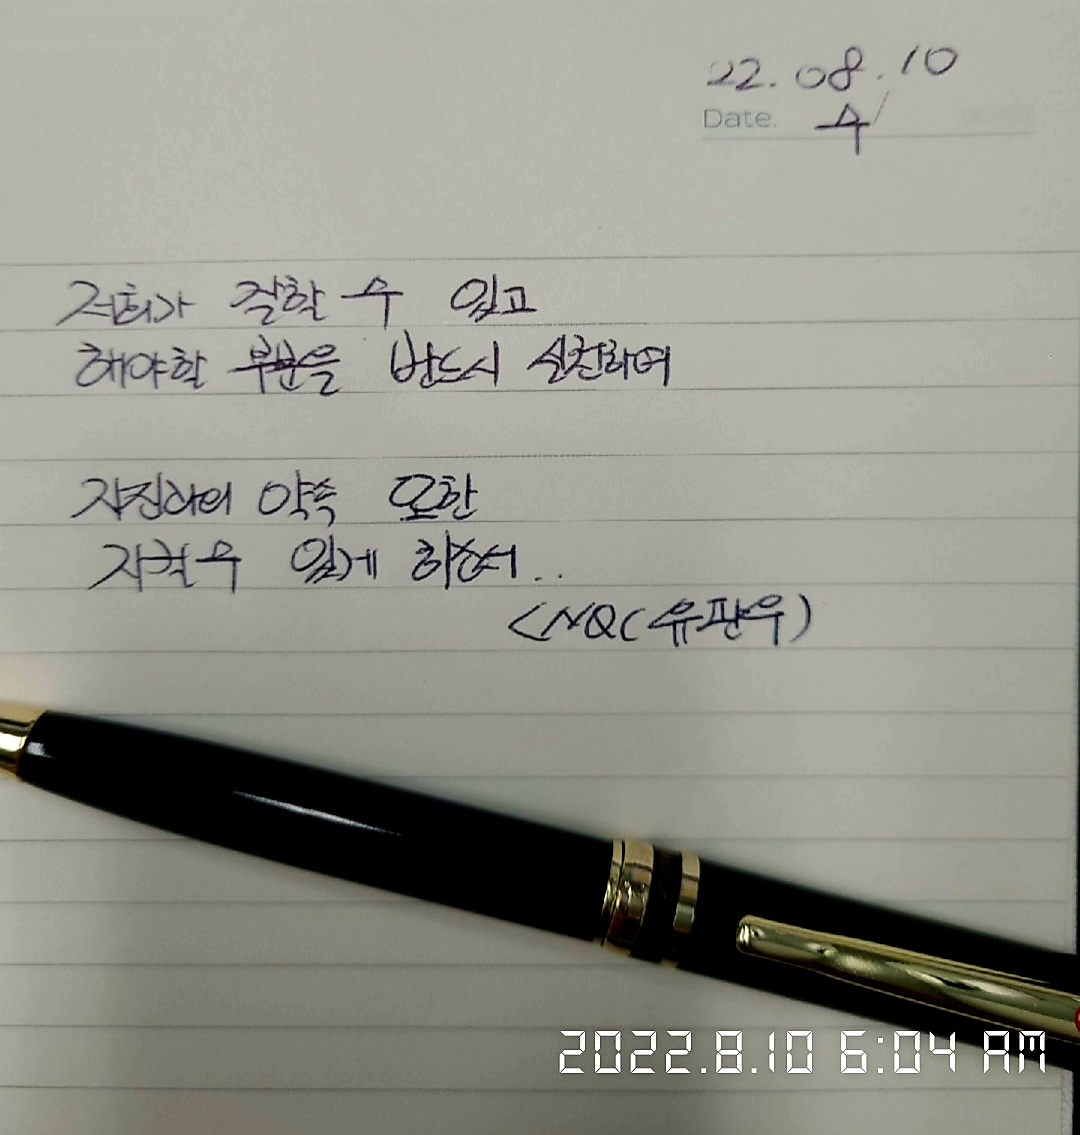 22.08.10
Date. 수
저희가 잘할 수 있고
해야할 부분을 반드시 실천하여
자신과의 약속 또한
지킬수 있게 하소서..
<NQC(유관우)
2022.8.10 6:04 AM